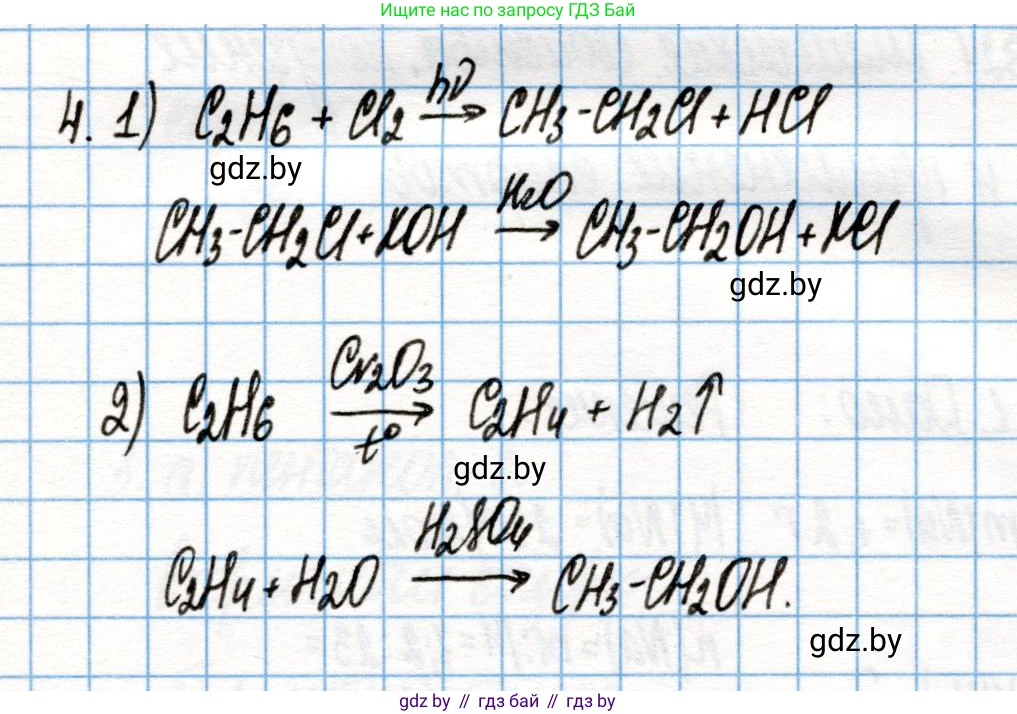 Ищите нас по запросу ГДЗ Бай
4. 1) C2H6 + Cl2 hν→ CH3-CH2Cl + HCl
gdz.by
CH3-CH2Cl + KOH H2O→ CH3-CH2OH + KCl
gdz.by
2) C2H6 Cr2O3→t° C2H4 + H2↑
gdz.by
C2H4 + H2O H2SO4→ CH3-CH2OH.
gdz.by
gdz by // гдз бай // gdz by